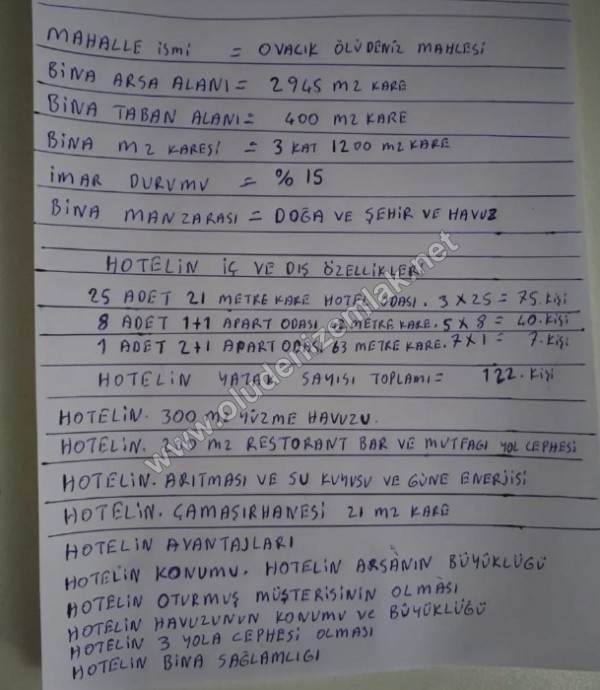 MAHALLE İSMİ = OVACIK ÖLÜDENİZ MAHLESİ
BİNA ARSA ALANI = 2945 M2 KARE
BİNA TABAN ALANI = 400 M2 KARE
BİNA M2 KARESİ = 3 KAT 1200 M2 KARE
İMAR DURUMU = % 15
BİNA MANZARASI = DOĞA VE ŞEHİR VE HAVUZ
HOTELİN İÇ VE DIŞ ÖZELLİKLERİ
25 ADET 21 METRE KARE HOTEL ODASI. 3 X 25 = 75. KİŞİ
8 ADET 1+1 APART ODASI METRE KARE. 5 X 8 = 40. KİŞİ
1 ADET 2+1 APART ODASI 63 METRE KARE. 7 X 1 = 7. KİŞİ
HOTELİN YATAK SAYISI TOPLAMI = 122. KİŞİ
HOTELİN. 300 M2 YÜZME HAVUZU.
HOTELİN. M2 RESTORANT BAR VE MUTFAGI YOL CEPHESİ
HOTELİN. ARITMASI VE SU KUYUSU VE GÜNE ENERJİSİ
HOTELİN. ÇAMAŞIRHANESİ 21 M2 KARE
HOTELİN AVANTAJLARI
HOTELİN KONUMU. HOTELİN ARSANIN BÜYÜKLÜGÜ
HOTELİN OTURMUŞ MÜŞTERİSİNİN OLMASI
HOTELİN HAVUZUNUN KONUMU VE BÜYÜKLÜĞÜ
HOTELİN 3 YOLA CEPHESİ OLMASI
HOTELİN BİNA SAĞLAMLIGI
www.oludenizemlak.net